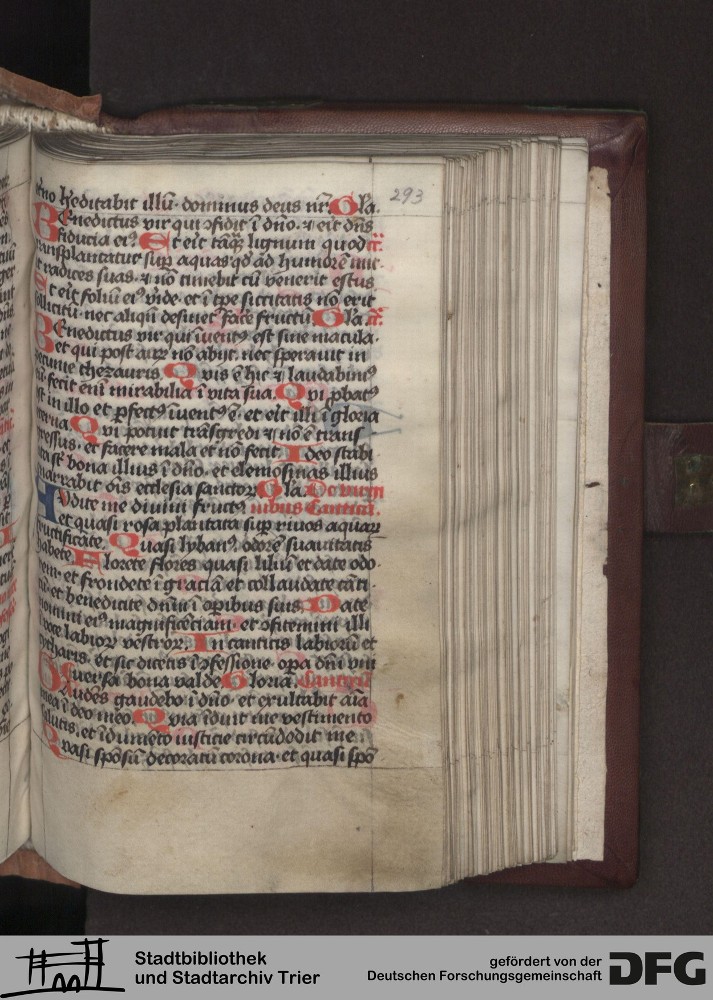 293
hẽditabit illũ · dominus deus nr̃ · Gl'a ·
Benedictus vir qui ↄfidit ĩ dño · ⁊ erit dñs
fiducia eiꝰ Et erit tãq̃ lignum quod
transplantatur suꝑ aquas qđ ad humorẽ mit-
t radices suas · ⁊ nõ timebit cũ venerit estus
Et erit foliũ eiꝰ viride · et ĩ tp̃e siccitatis nõ erit
sollicitũ · nec aliqñ desinet fac̃e fructũ Gl'a ·
Benedictus vir qui ĩuentꝰ est sine macula ·
et qui post aurũ nõ abijt · nec sperauit in
pecunie thezauris Quis ẽ hic ⁊ laudabimꝰ
eũ · fecit eni mirabilia ĩ vita sua · Qui ꝓbatꝰ
est in illo et ꝑfectꝰ ĩuentꝰ ẽ · et erit illi ĩ gloria
eterna · Qui potuit trãsgredi ⁊ nõ ẽ trans
gressus · et facere mala et nõ fecit Ideo stabi
lita st̃ bona illius ĩ dño · et elemosinas illius
enarrabit oĩs ecclesia sanctoꝝ Gl'a · De virgi
Audite me diuini fructꝰ nibus Cantica ·
et quasi rosa plantata suꝑ riuos aquaꝝ
fructificate · Quasi lybanꝰ odorẽ suauitatis
habete Florete flores quasi liliũ et date odo-
rem · et frondete ĩ graciã et collaudate cãti-
cũ · et benedicite dñm ĩ oꝑibus suis · Date
nomini eiꝰ magnificẽciam · et ↄfitemini illi
ĩ voce labioꝝ vestroꝝ · In canticis labiorũ et
cytharis · et sic dicetis ĩ ↄfessione · oꝑa dñi vni
uersa bona valde Gloria · Canticũ
Gaudẽs gaudebo ĩ dño · et exultabit aĩa
mea ĩ deo meo · Quia ĩduit me vestimento
salutis · et ĩdumẽto iusticie circũdedit me
Quasi spõsũ decoratũ corona · et quasi spõ
Stadtbibliothek
und Stadtarchiv Trier
gefördert von der
Deutschen Forschungsgemeinschaft
DFG